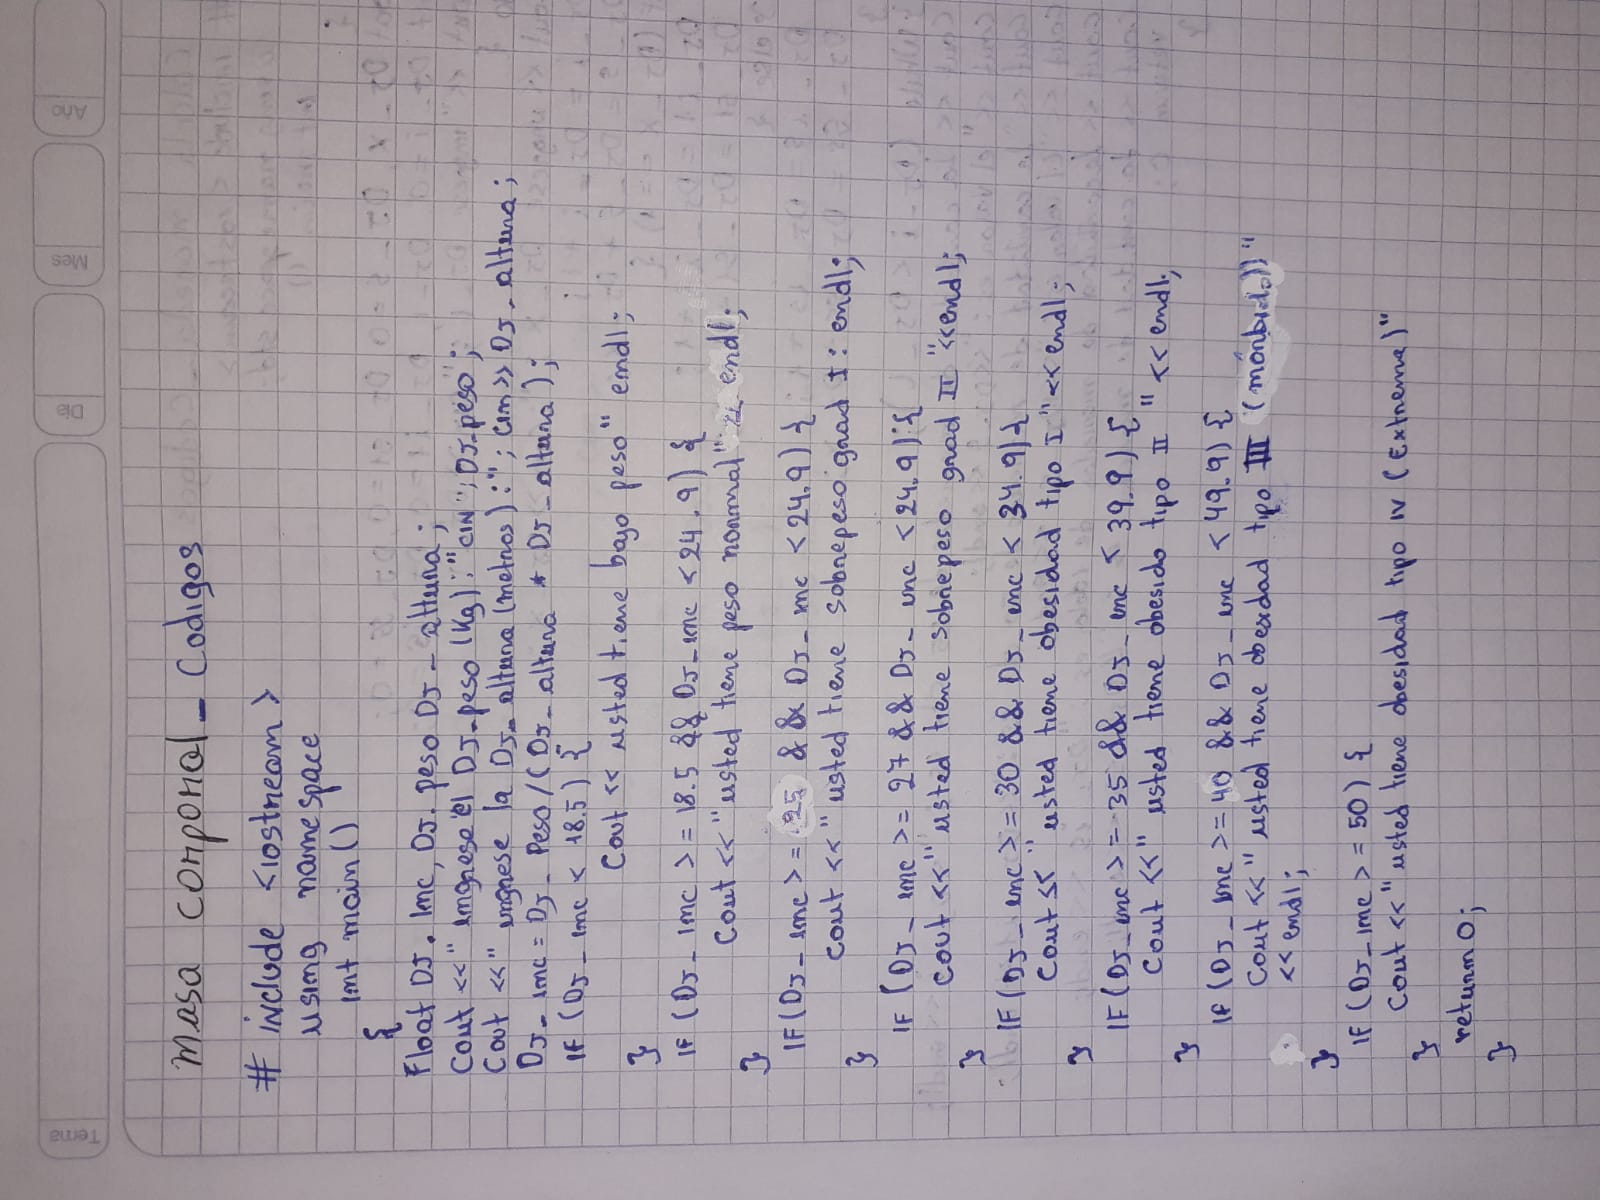 Tema
Dia
Mes
Año
Masa corporal_ Codigos
# include <iostream>
using namespace
int main()
{
Float DJ. Imc, DJ. peso DJ_altura;
Cout <<" ingrese el DJ_peso (Kg): "CIN"; DJ_peso;
Cout <<" ingrese la DJ_ altura (metros):"; cin>> DJ_altura;
DJ_imc = DJ_ Peso/(DJ_altura * DJ_altura);
IF (DJ_ imc < 18.5) {
Cout << usted tiene bajo peso" endl;
}
IF (DJ_ Imc >= 18.5 && DJ_imc <24.9) {
Cout <<"usted tiene peso normal" << endl;
}
IF(DJ_ imc >= 25 && DJ_ mc <24.9) {
cout <<" usted tiene sobrepeso grad I: endl;
}
IF (DJ_ imc >= 27 && DJ_ imc <24.9) {
cout <<" usted tiene sobrepeso grad II "<<endl;
}
IF(DJ_ imc >= 30 && DJ_ imc < 34.9){
Cout << " usted tiene obesidad tipo I "<< endl;
}
IF(DJ_imc >= 35 && DJ_ imc < 39.9) {
Cout <<" usted tiene obesido tipo II " << endl;
}
IF (DJ_ imc >= 40 && DJ_ imc <49.9) {
Cout <<" usted tiene obesidad tipo III (mórbido))"
<< endl;
}
IF (DJ_imc >= 50) {
Cout <<"usted tiene obesidad tipo IV (Extrema)"
}
return 0;
}